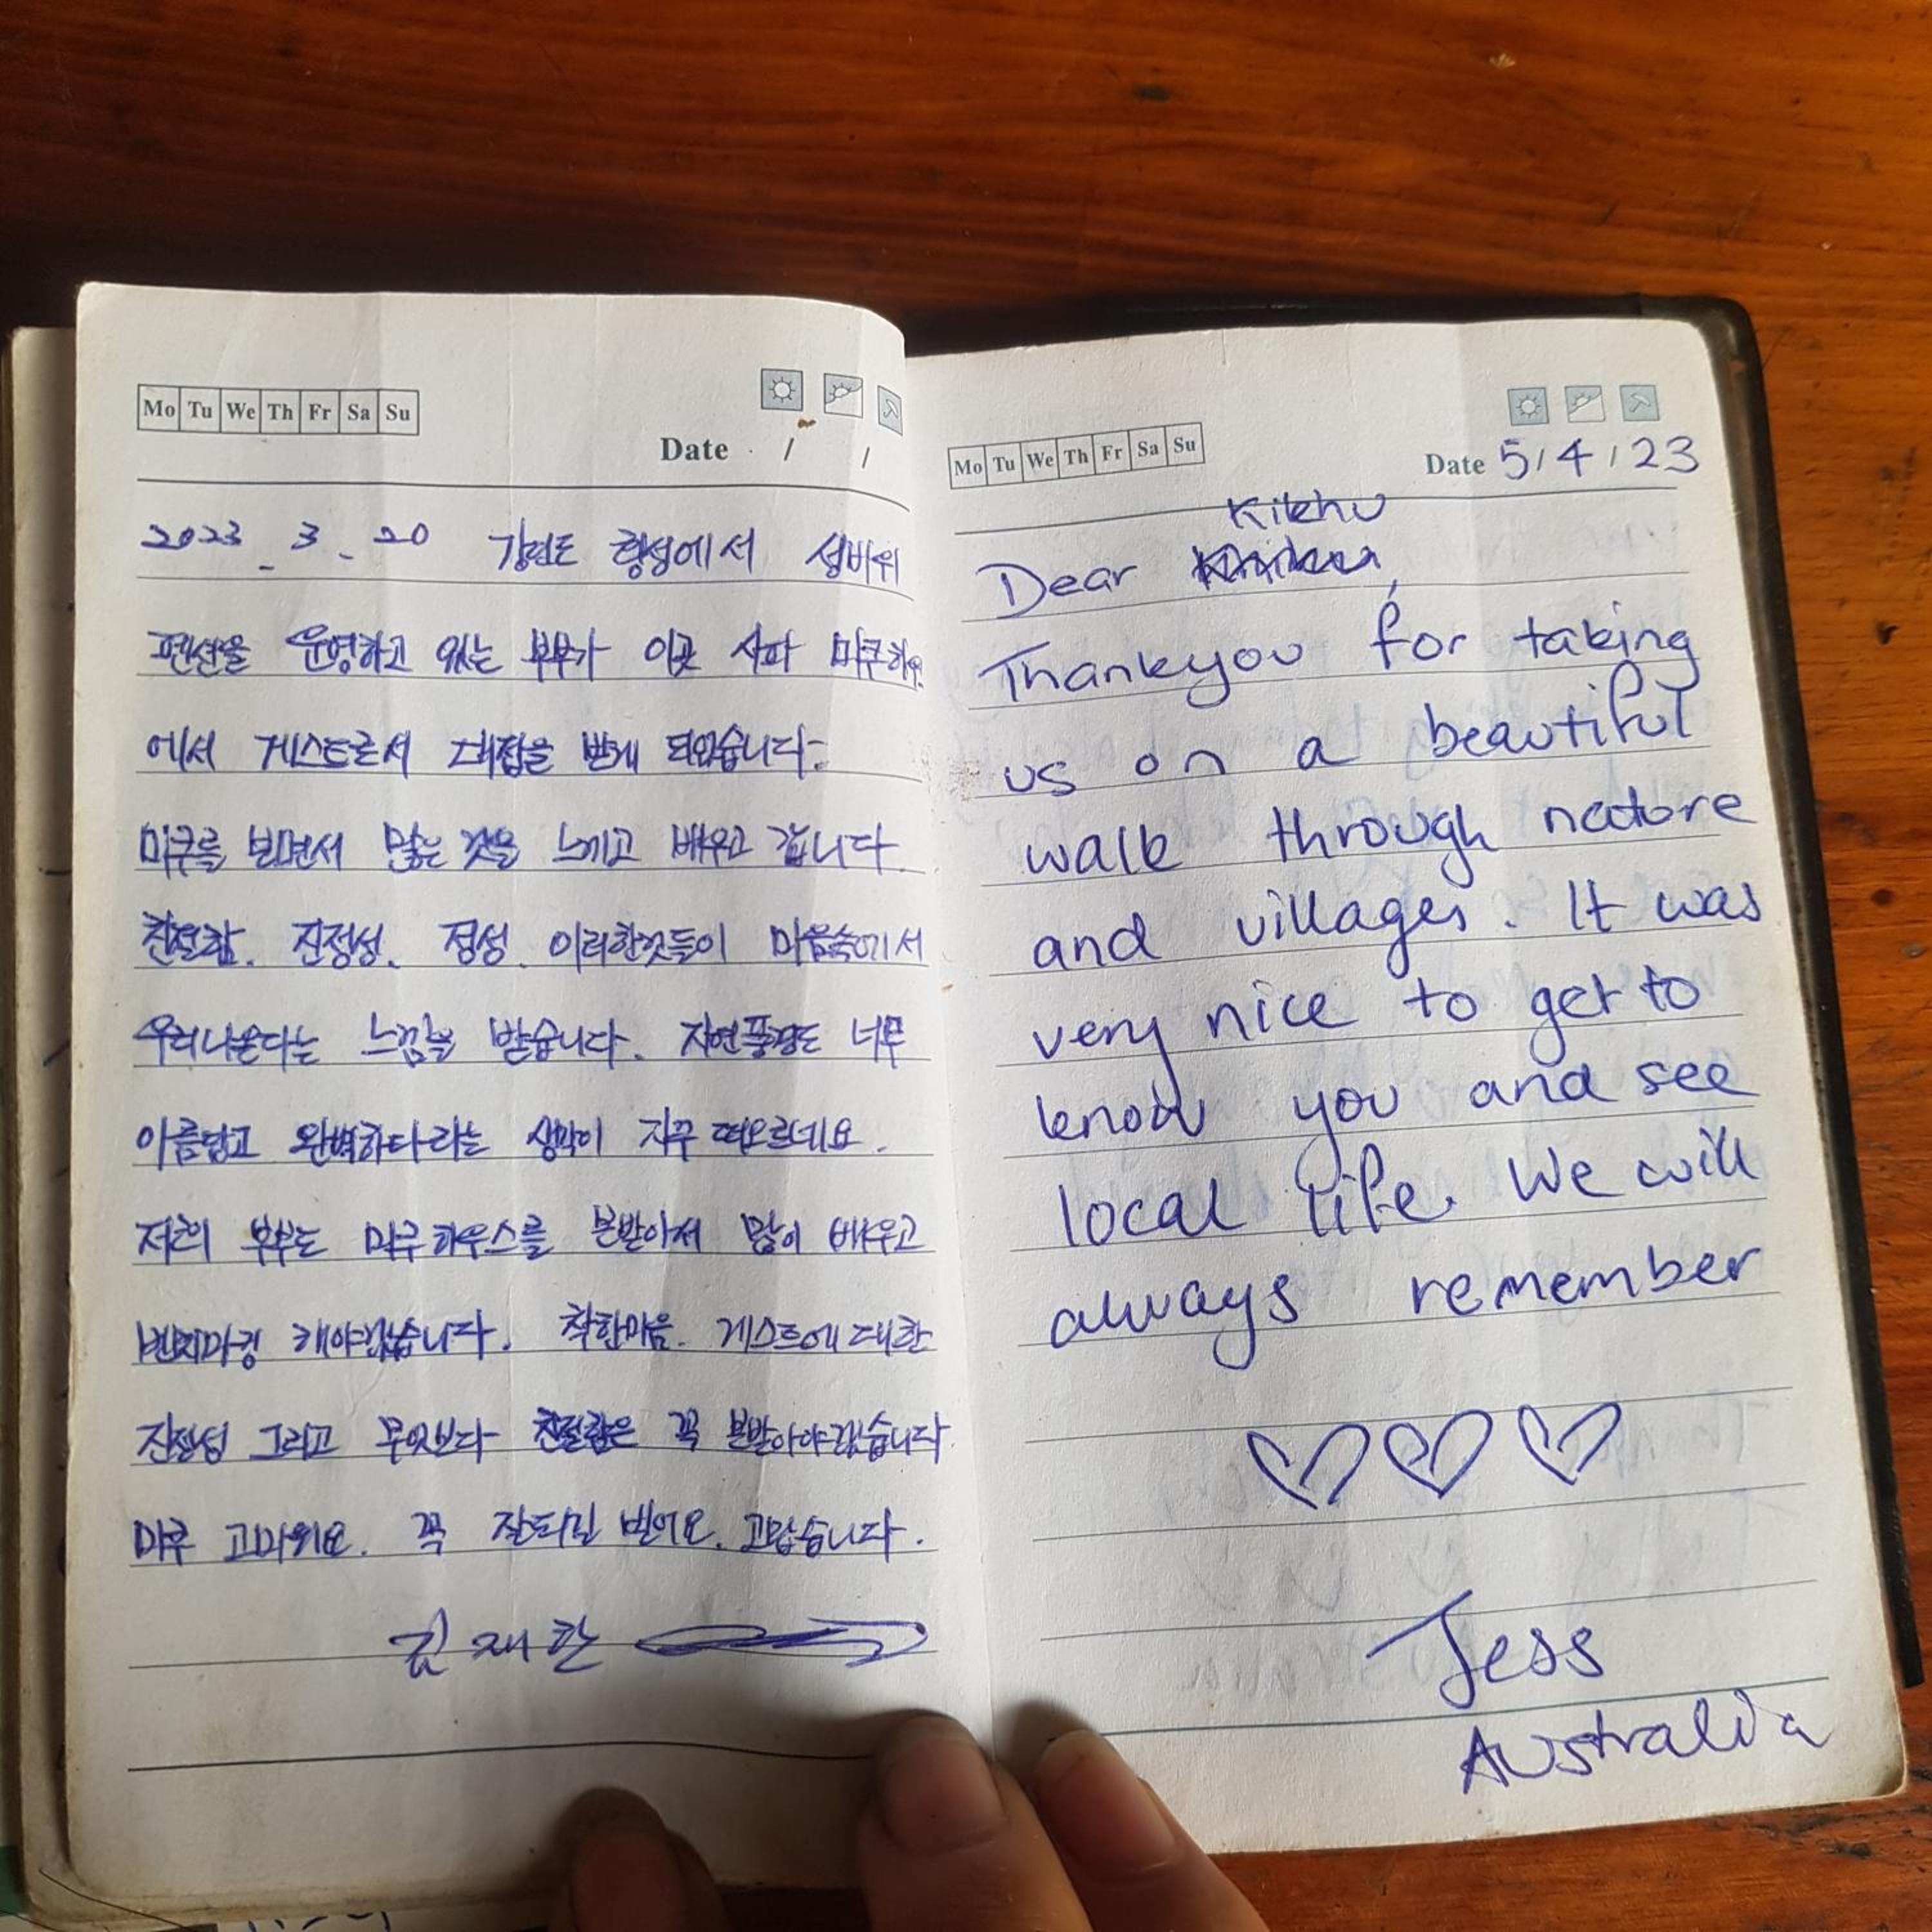 Mo Tu We Th Fr Sa Su
Date / /
2023. 3. 20 강원도 횡성에서 섬바위
펜션을 운영하고 있는 부부가 이곳 사파 미쿠하우
에서 게스트로서 대접을 받게 되었습니다.
미쿠를 보면서 많은 것을 느끼고 배우고 갑니다
친절함. 진정성. 정성. 이러한것들이 마음속에서
우러나온다는 느낌을 받습니다. 자연풍경도 너무
아름답고 완벽하다라는 생각이 자꾸 떠오르네요.
저희 부부도 미쿠하우스를 본받아서 많이 배우고
벤치마킹 해야겠습니다. 착한마음. 게스트에 대한
진정성 그리고 무엇보다 친절함은 꼭 본받아야겠습니다
미쿠 고마워요. 꼭 잘되길 빌어요. 고맙습니다.
김재환
Mo Tu We Th Fr Sa Su
Date 5/4/23
Kikhu
Dear
Thankyou for taking
us on a beautiful
walk through nature
and villages. It was
very nice to get to
know you and see
local life. We will
always remember
Jess
Australia